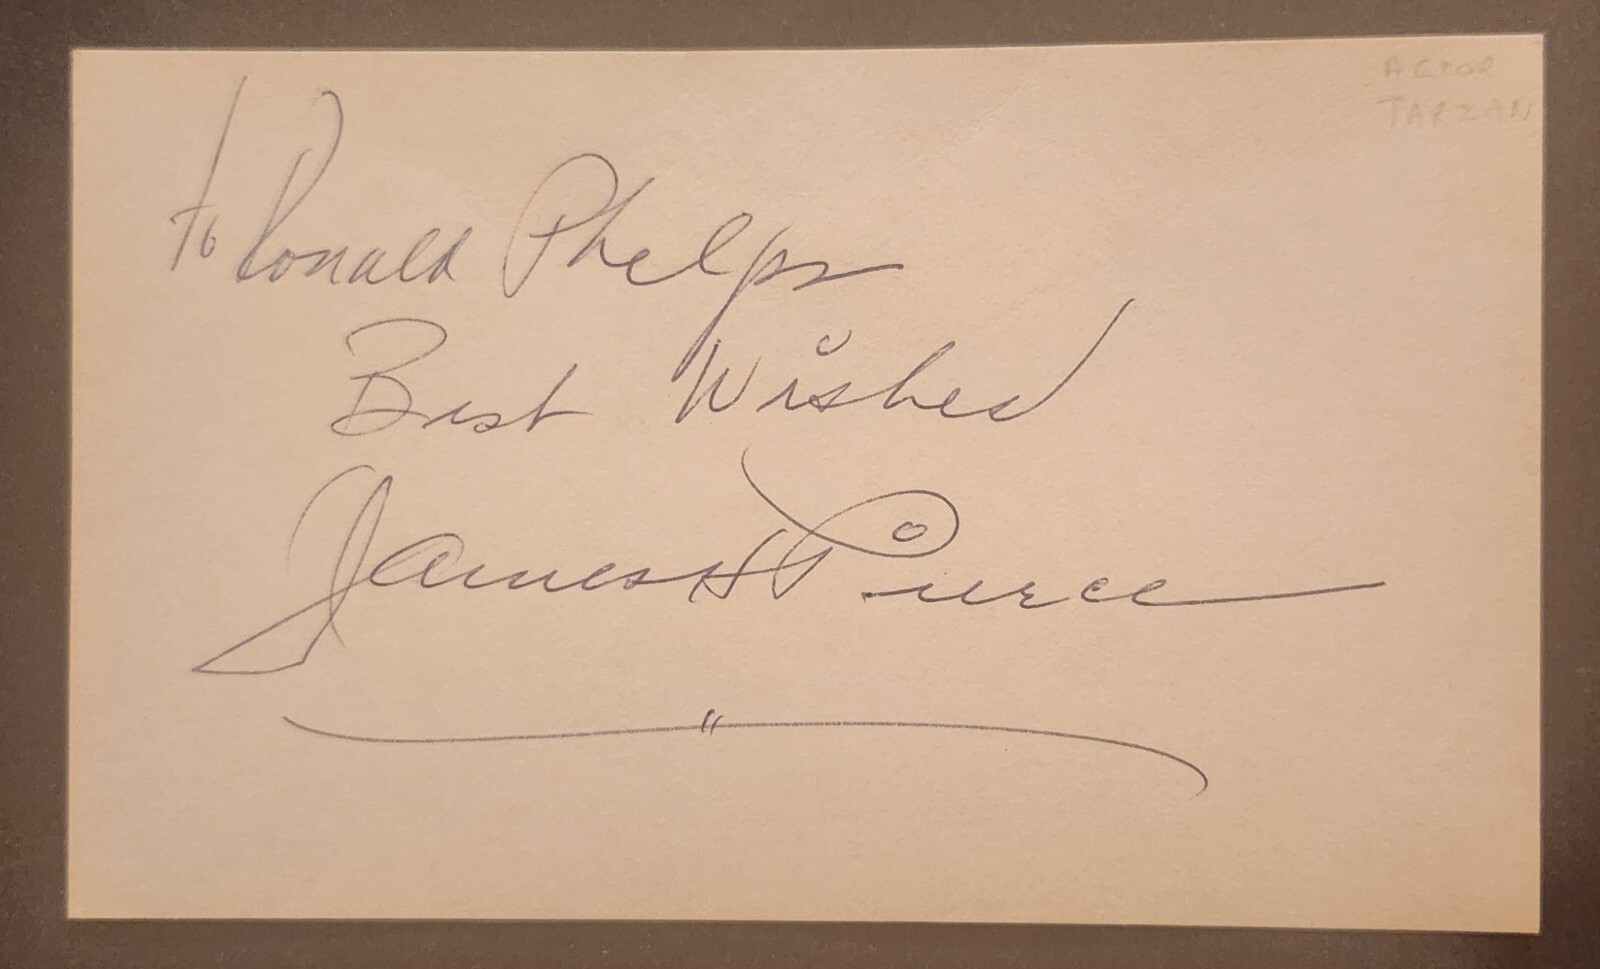 ACTOR
TARZAN
To Ronald Phelps
Best Wishes
James H Pierce